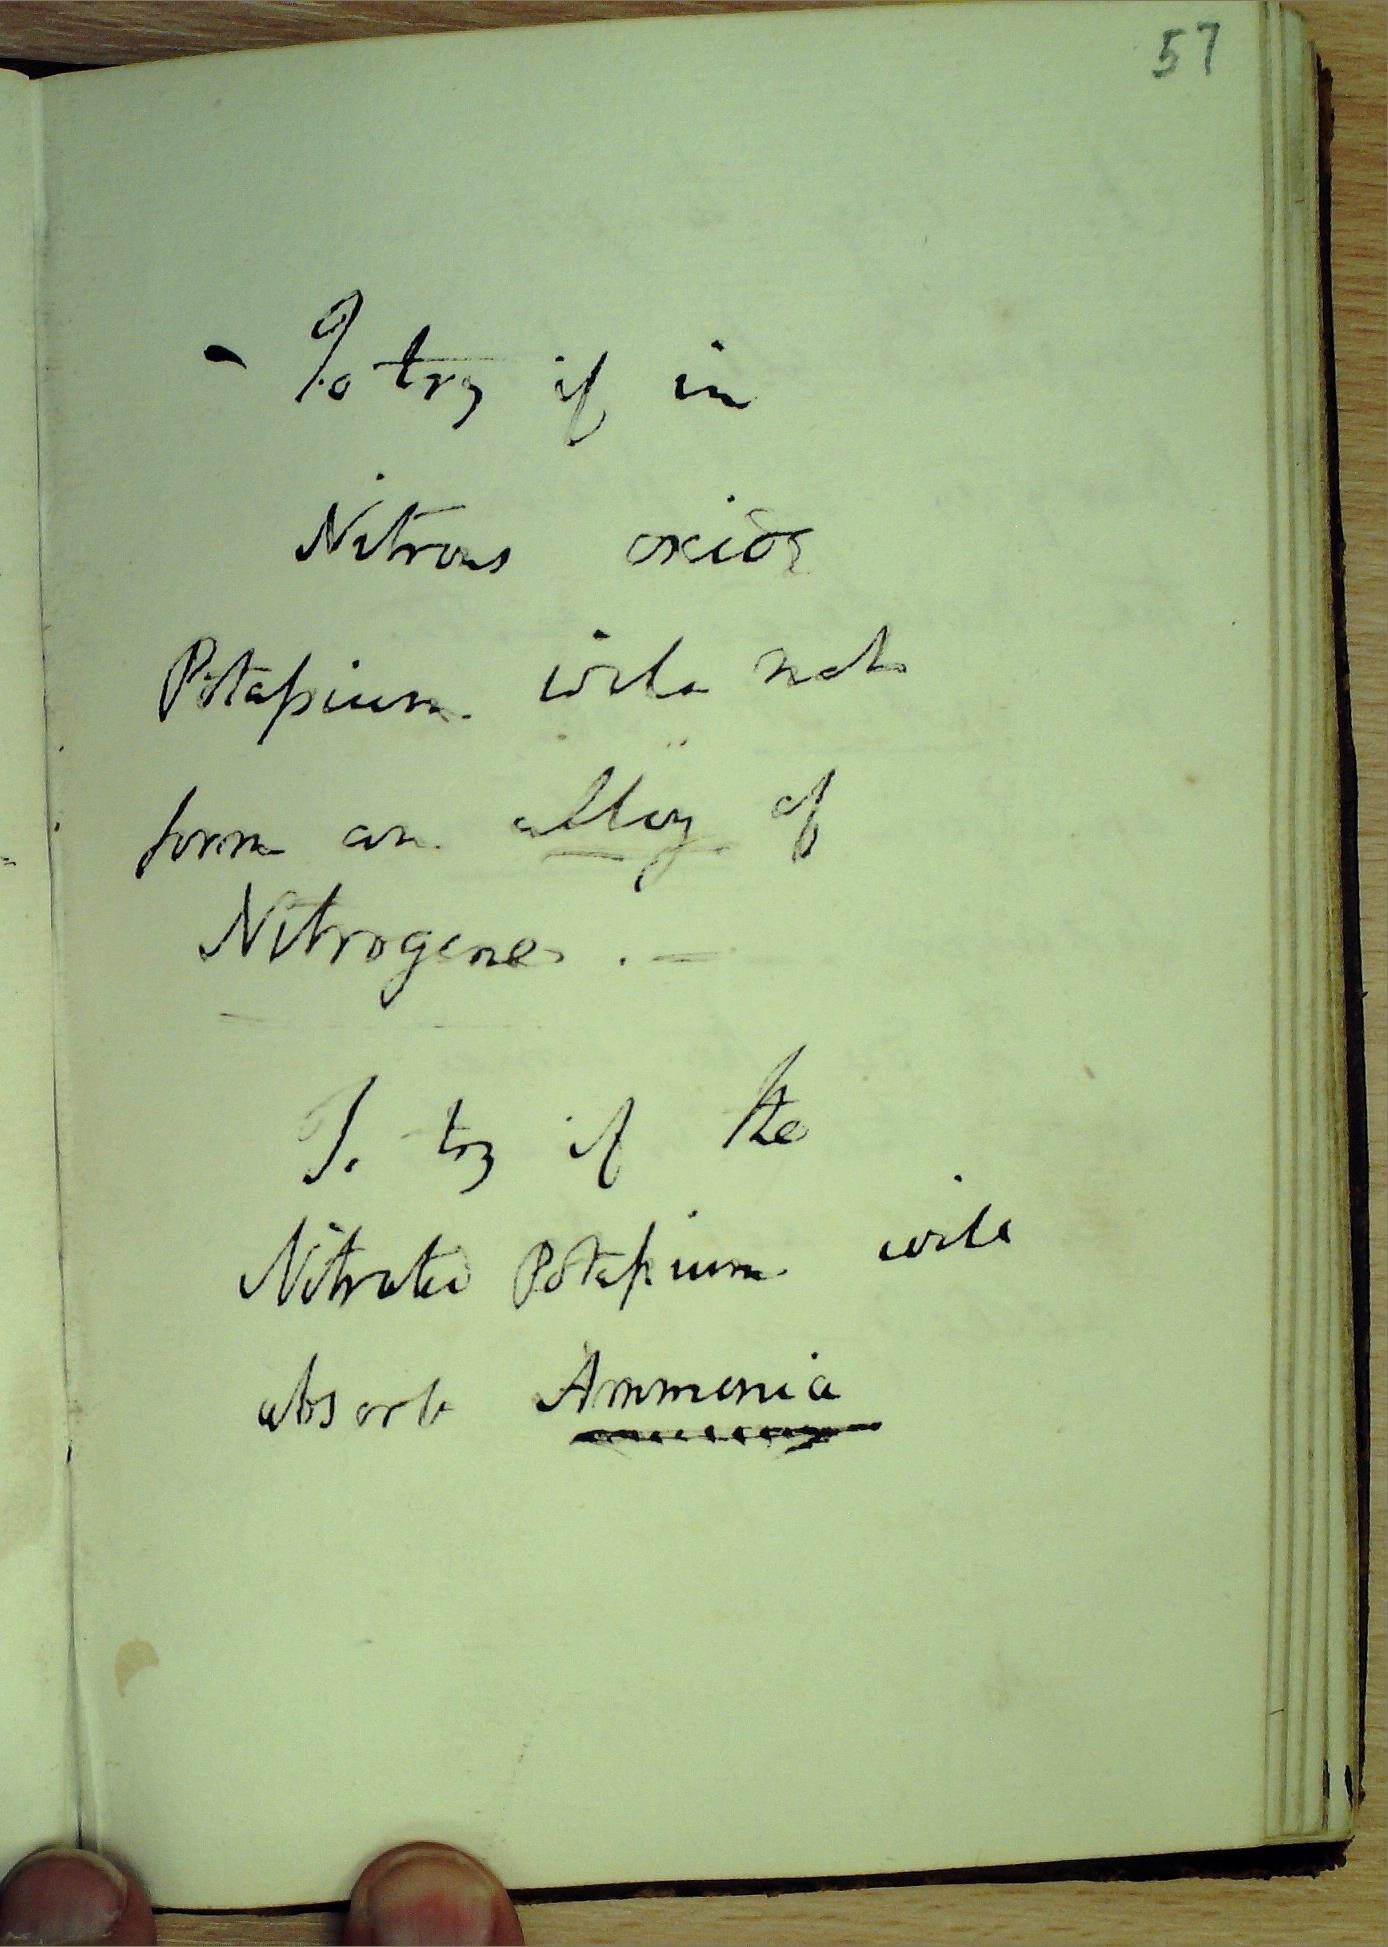 57
- To try if in
Nitrous oxide
Potaſsium will not
form an alloy of
Nitrogene . —
To try if the
Nitrated Potaſsium will
absorb Ammonia